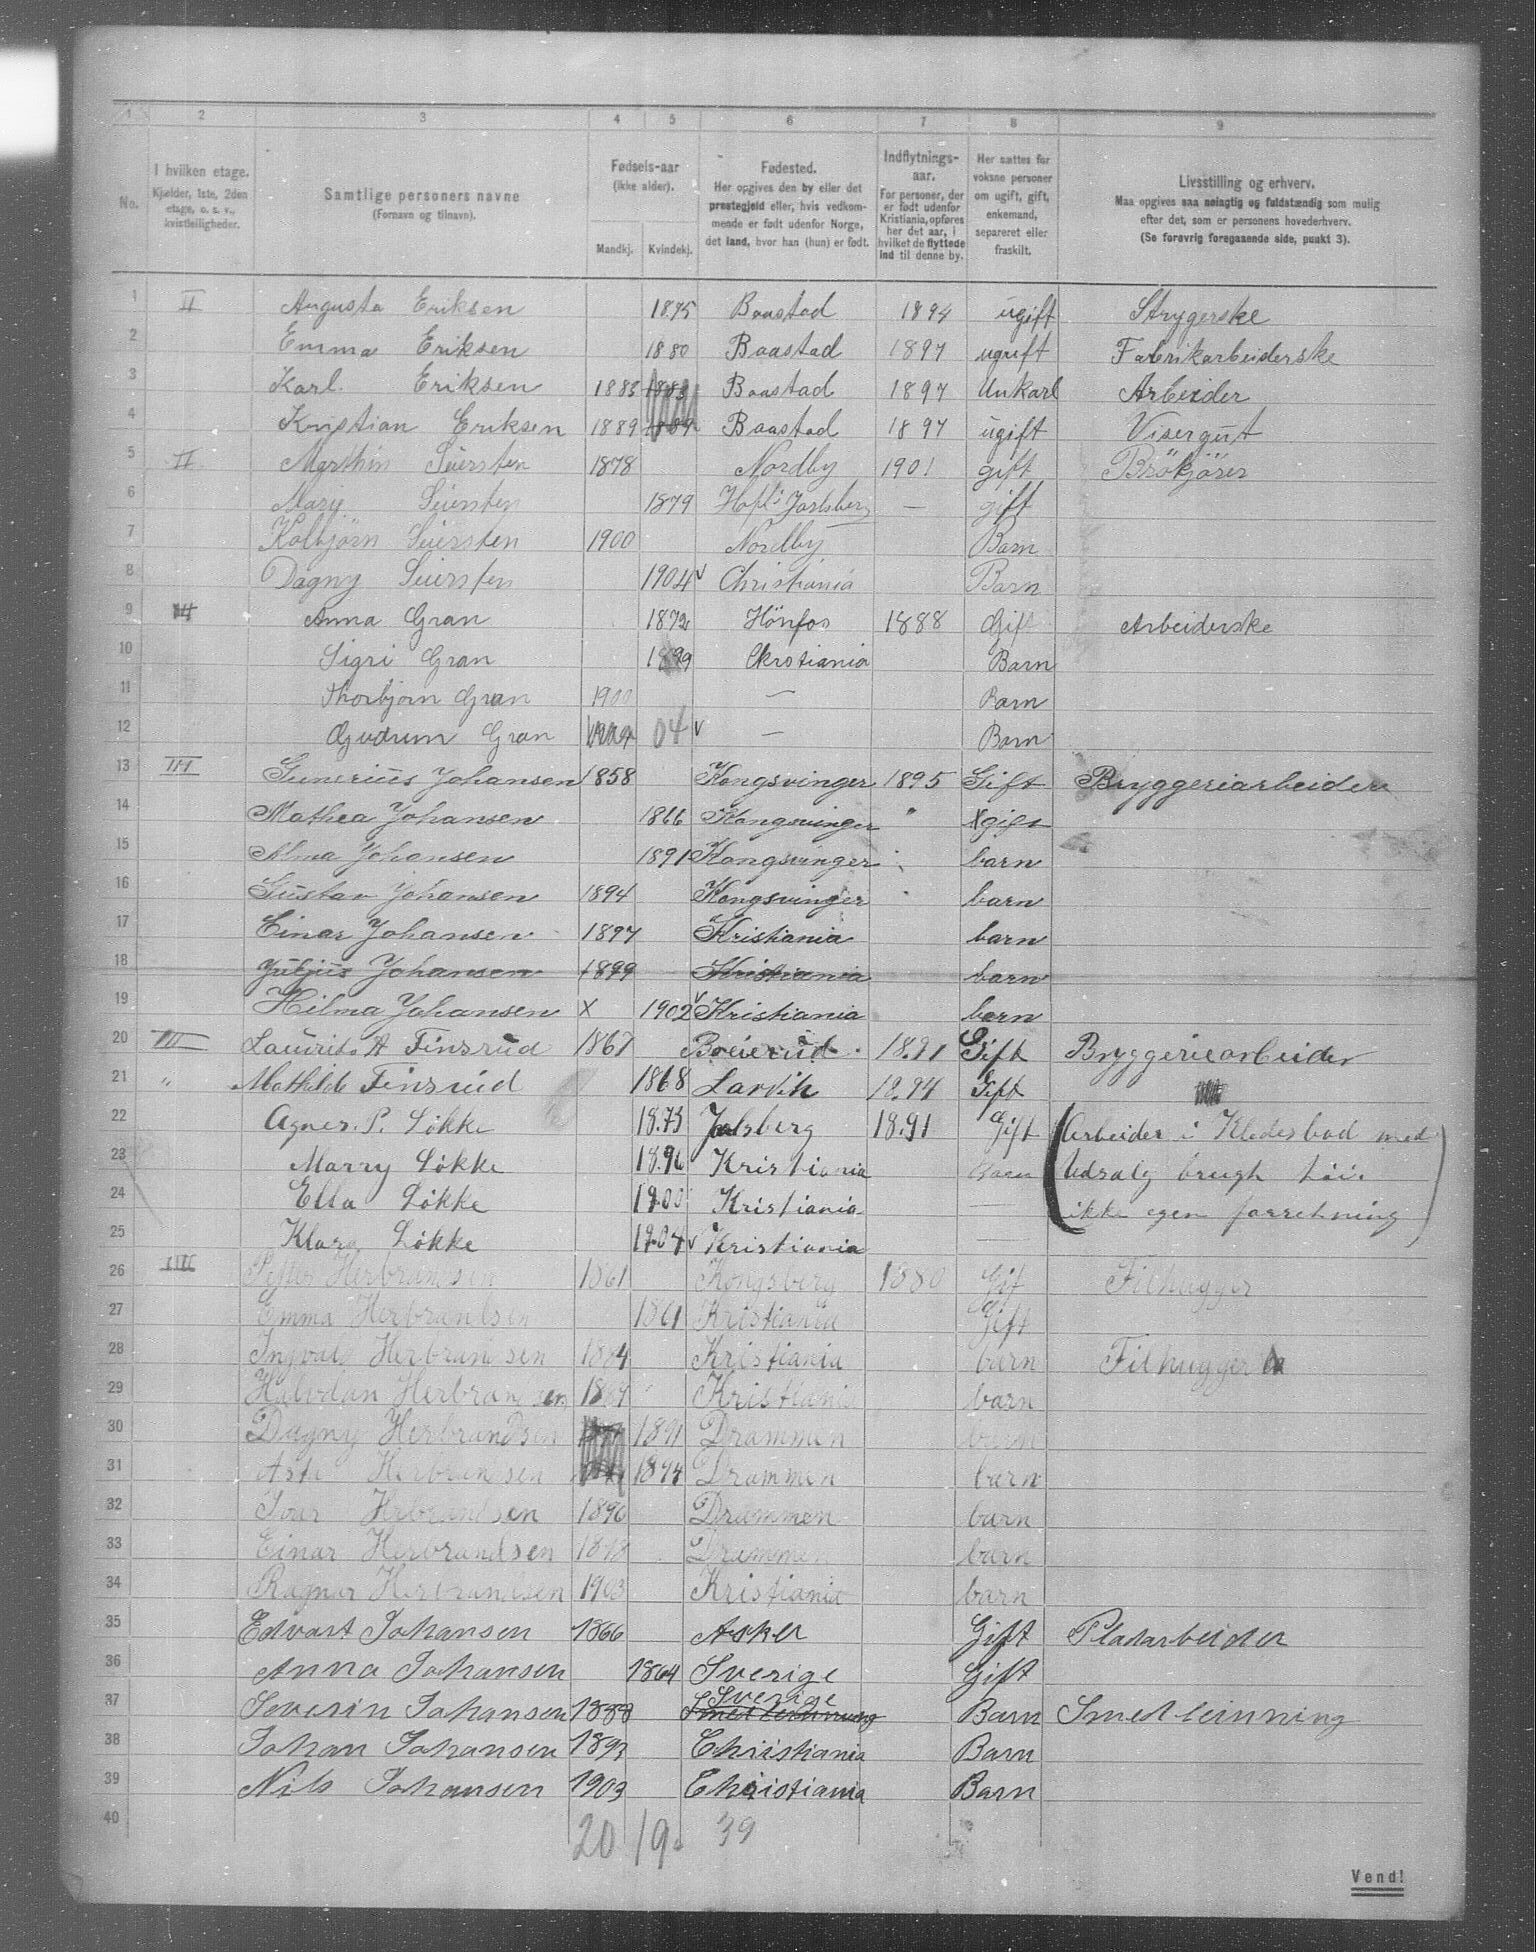 1 2 3 4 5 6 7 8 9
No.
I hvilken etage.
Kjælder, 1ste, 2den
etage, o. s. v.,
kvistleiligheder.
Samtlige personers navne
(Fornavn og tilnavn).
Fødsels-aar
(ikke alder).
Mandkj. Kvindekj.
Fødested.
Her opgives den by eller det
prestegjeld eller, hvis vedkom-
mende er født udenfor Norge,
det land, hvor han (hun) er født.
Indflytnings-
aar.
For personer, der
er født udenfor
Kristiania, opføres
her det aar, i
hvilket de flyttede
ind til denne by.
Her sættes for
voksne personer
om ugift, gift,
enkemand,
separeret eller
fraskilt.
Livsstilling og erhverv.
Maa opgives saa nøiagtig og fuldstændig som mulig
efter det, som er personens hovederhverv.
(Se forøvrig foregaaende side, punkt 3).
1 II Augusta Eriksen 1875 Baastad 1894 ugift Strygerske
2 Emma Eriksen 1880 Baastad 1897 ugift Fabrikarbeiderske
3 Karl Eriksen 1883 1883 Baastad 1897 Unkarl Arbeider
4 Kristian Eriksen 1889 Baastad 1897 ugift Visergut
5 II Marthin Seiersten 1878 Nordby 1901 gift
6 Mary Seiersten 1879 Jarlsberg — gift
7 Kolbjørn Seiersten 1900 Nordby Barn
8 Dagny Seiersten 1904 v Christiania Barn
9 Anna Gran 1872 Hönfos 1888 Gift Arbeiderske
10 Sigri Gran 1899 Barn
11 Thorbjørn Gran 1900 — Barn
12 Gudrun Gran 04 v — Barn
13 III Gunerius Johansen 1858 Kongsvinger 1895 Gift Bryggeriarbeider
14 Mathea Johansen 1866 Kongsvinger " gift
15 Alma Johansen 1891 Kongsvinger barn
16 Gustav Johansen 1894 Kongsvinger barn
17 Einar Johansen 1897 Kristiania barn
18 Johansen 1899 Kristiania barn
19 Hilma Johansen X 1902 v Kristiania barn
20 III Laurits A Finsrud 1867 1891 Gift Bryggeriearbeider
21 " Mathilde Finsrud 1868 Larvik 1894 Gift
22 Agnes. P. Løkke 1875 Jalsberg 1891 Gift (Arbeider i Kledesbod med
23 Marry Løkke 1896 Kristiania Barn Udsalg
24 Ella Løkke 1900 Kristiania — ikke egen forretning)
25 Klara Løkke 1904 v Kristiania —
26 III Petter Herbrandsen 1861 Kongsberg 1880 Gif Filhugger
27 Emma Herbrandsen 1861 Kristiania Gift
28 Ingvald Herbrandsen 1884 Kristiania barn Filhugger
29 Halvdan Herbrandsen Kristiania barn
30 Dagny Herbrandsen 1891 Drammen barn
31 Herbrandsen 1894 Drammen barn
32 Ivar Herbrandsen 1896 Drammen barn
33 Einar Herbrandsen 1898 Drammen barn
34 Ragnar Herbrandsen 1903 Kristiania barn
35 Edvart Johansen 1866 Asker Gift Pladsarbeider
36 Anna Johansen 1864 Sverige Gift
37 Severin Johansen 1888 Sverige Barn Smedleinning
38 Johan Johansen 1893 Christiania Barn
39 Nils Johansen 1903 Christiania Barn
40
20 19. 39
Vend!